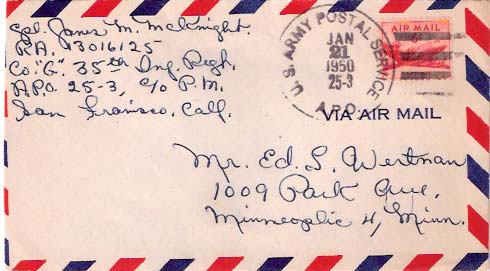 Cpl. James M. McKnight.
R.A. 13016125
Co. "G". 35th Inf. Regt.
A.P.O. 25-3, c/o P.M.
San Francisco, Calif.
U.S. ARMY POSTAL SERVICE
JAN
21
1950
25-3
A.P.O.
AIR MAIL
VIA AIR MAIL
Mr. Ed. L. Wertman
1009 Park Ave.
Minneaplis 4, Minn.